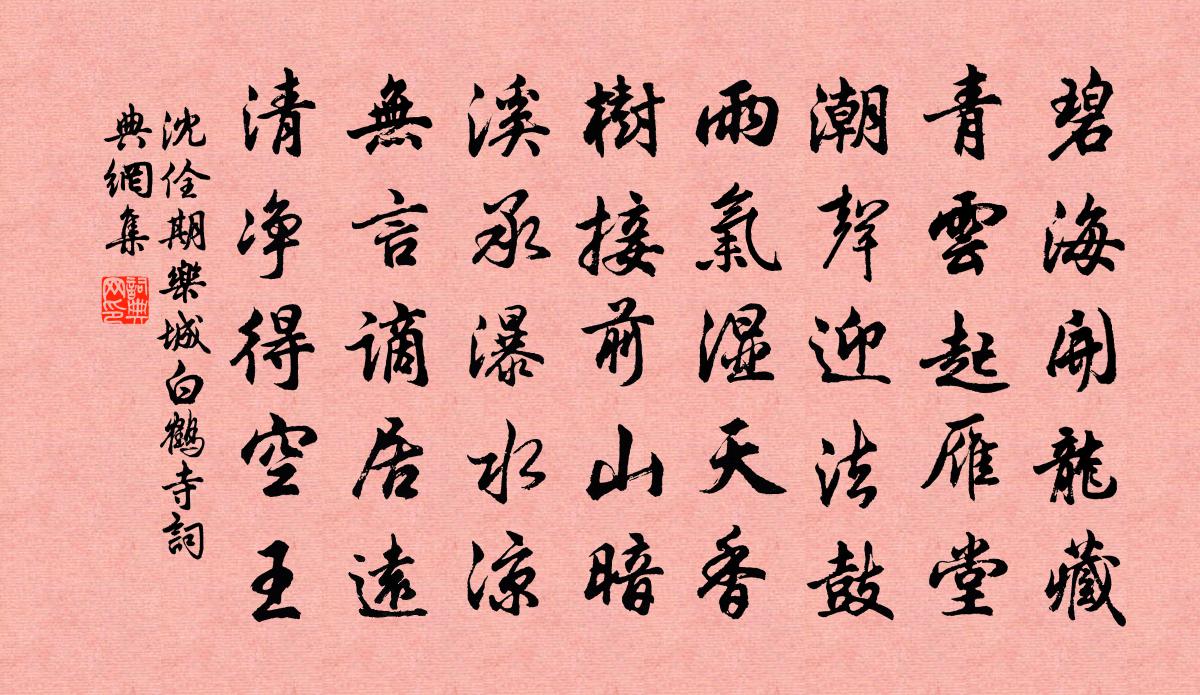 碧海開龍藏
青雲起雁堂
潮聲迎法鼓
雨氣濕天香
樹接前山暗
溪承瀑水涼
無言謫居遠
清净得空王
沈佺期樂城白鶴寺詞
典網集
詞典
网印